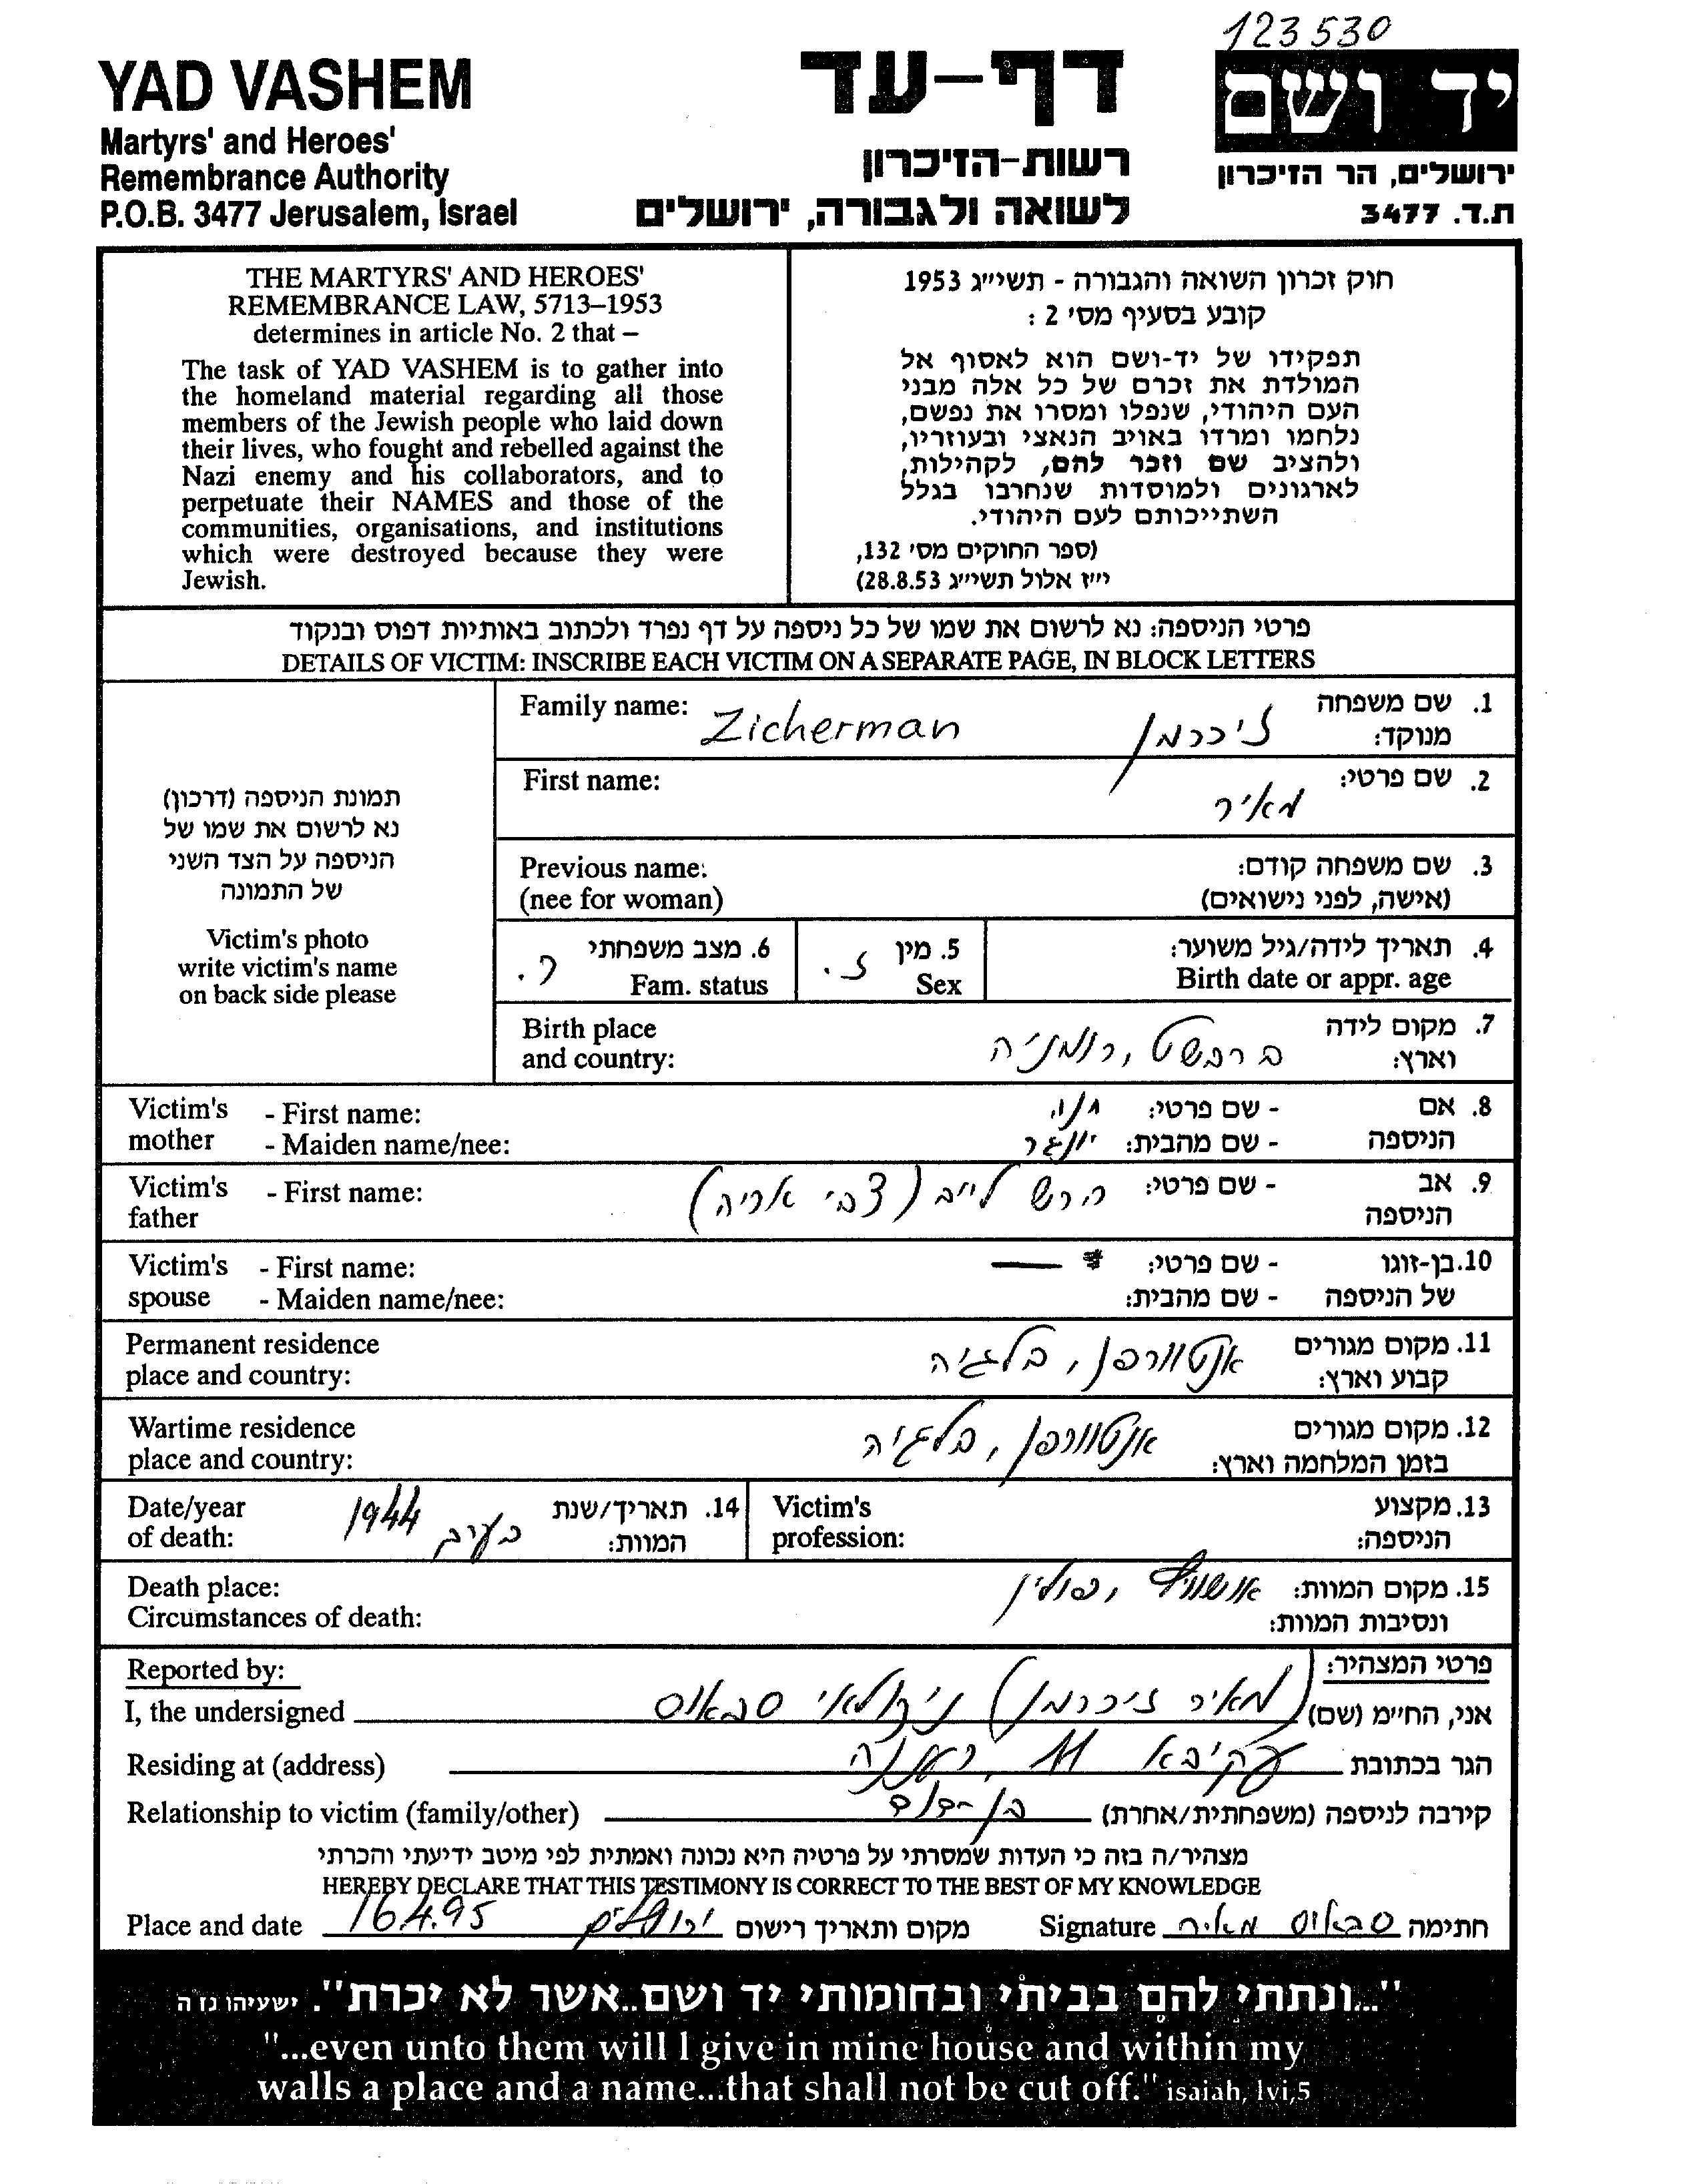 123530
YAD VASHEM
Martyrs' and Heroes'
Remembrance Authority
P.O.B. 3477 Jerusalem, Israel
דף-עד
רשות-הזיכרון
לשואה ולגבורה, ירושלים
יד ושם
ירושלים, הר הזיכרון
ת.ד. 3477
THE MARTYRS' AND HEROES'
REMEMBRANCE LAW, 5713–1953
determines in article No. 2 that –
The task of YAD VASHEM is to gather into
the homeland material regarding all those
members of the Jewish people who laid down
their lives, who fought and rebelled against the
Nazi enemy and his collaborators, and to
perpetuate their NAMES and those of the
communities, organisations, and institutions
which were destroyed because they were
Jewish.
חוק זכרון השואה והגבורה - תשי״ג 1953
קובע בסעיף מס' 2 :
תפקידו של יד-ושם הוא לאסוף אל
המולדת את זכרם של כל אלה מבני
העם היהודי, שנפלו ומסרו את נפשם,
נלחמו ומרדו באויב הנאצי ובעוזריו,
ולהציב שם וזכר להם, לקהילות,
לארגונים ולמוסדות שנחרבו בגלל
השתייכותם לעם היהודי.
(ספר החוקים מס' 132,
י״ז אלול תשי״ג 28.8.53)
פרטי הניספה: נא לרשום את שמו של כל ניספה על דף נפרד ולכתוב באותיות דפוס ובנקוד
DETAILS OF VICTIM: INSCRIBE EACH VICTIM ON A SEPARATE PAGE, IN BLOCK LETTERS
תמונת הניספה (דרכון)
נא לרשום את שמו של
הניספה על הצד השני
של התמונה
Victim's photo
write victim's name
on back side please
Family name: Zicherman זיכרמן 1. שם משפחה
מנוקד:
First name: מאיר 2. שם פרטי:
Previous name: 3. שם משפחה קודם:
(nee for woman) (אישה, לפני נישואים)
4. תאריך לידה/גיל משוער:
Birth date or appr. age
5. מין ז.
Sex
6. מצב משפחתי ר.
Fam. status
Birth place 7. מקום לידה
and country: ברבשט, רומניה וארץ:
Victim's - First name: 8. אם - שם פרטי: חנה
mother - Maiden name/nee: הניספה - שם מהבית: יונגר
Victim's - First name: 9. אב - שם פרטי: הרש לייב (צבי אריה)
father הניספה
Victim's - First name: 10. בן-זוגו - שם פרטי: —
spouse - Maiden name/nee: של הניספה - שם מהבית:
Permanent residence 11. מקום מגורים
place and country: קבוע וארץ: אנטוורפן, בלגיה
Wartime residence 12. מקום מגורים
place and country: בזמן המלחמה וארץ: אנטוורפן, בלגיה
Victim's 13. מקצוע
profession: הניספה:
Date/year 14. תאריך/שנת
of death: המוות: בערב 1944
Death place: 15. מקום המוות: אושוויץ, פולין
Circumstances of death: ונסיבות המוות:
Reported by: פרטי המצהיר:
I, the undersigned אני, החיימ (שם) (מאיר זיכרמן) ניקולאי סבאוס
Residing at (address) הגר בכתובת עקיבא 11, רעננה
Relationship to victim (family/other) קירבה לניספה (משפחתית/אחרת) בן-דוד
מצהיר/ה בזה כי העדות שמסרתי על פרטיה היא נכונה ואמתית לפי מיטב ידיעתי והכרתי
HEREBY DECLARE THAT THIS TESTIMONY IS CORRECT TO THE BEST OF MY KNOWLEDGE
Place and date 16.4.95 ירושלים מקום ותאריך רישום Signature סבאוס מאיר חתימה
"...ונתתי להם בביתי ובחומותי יד ושם..אשר לא יכרת". ישעיהו נז ה
"...even unto them will I give in mine house and within my
walls a place and a name...that shall not be cut off." isaiah, lvi,5